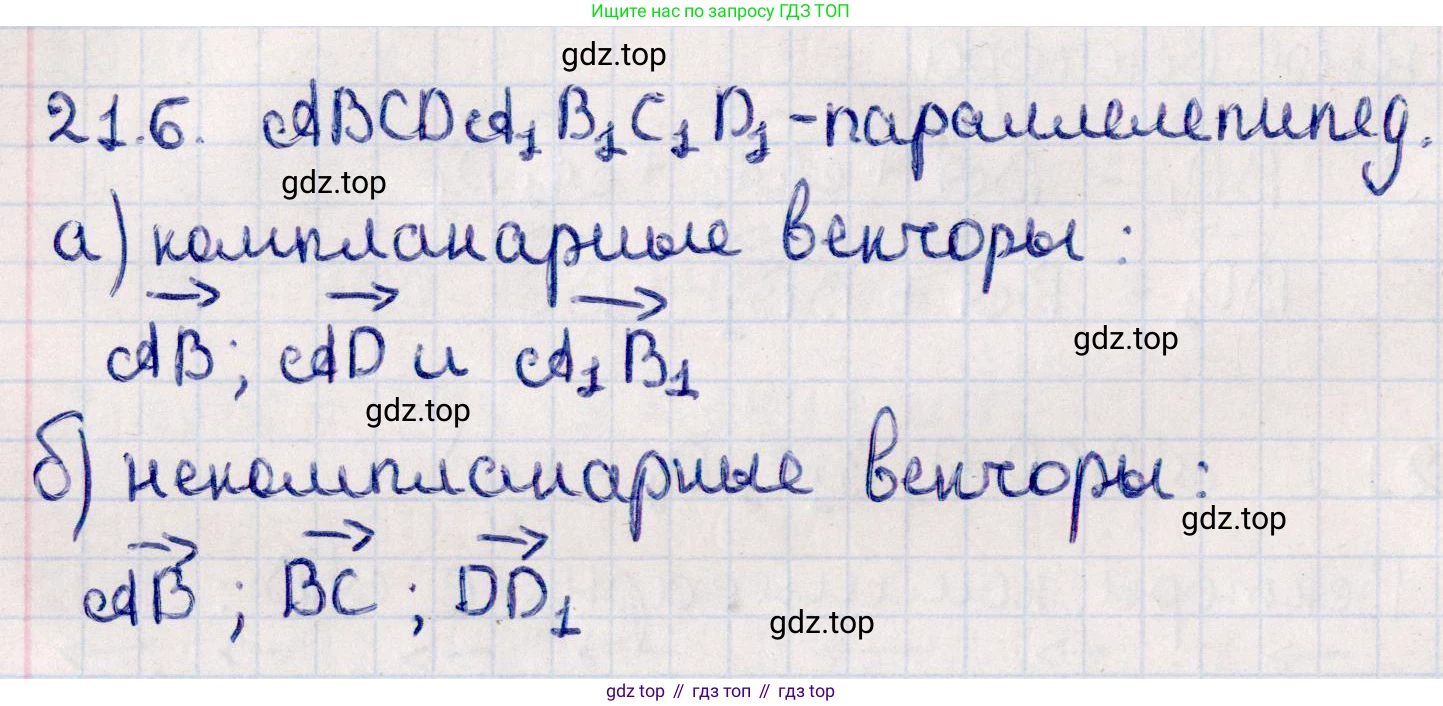 Ищите нас по запросу ГДЗ ТОП
gdz.top
21.6. ABCDA₁B₁C₁D₁ - параллелепипед.
gdz.top
а) компланарные векторы:
AB; AD и A₁B₁
gdz.top
gdz.top
б) некомпланарные векторы:
gdz.top
AB; BC; DD₁
gdz.top
gdz top // гдз топ // gdz top